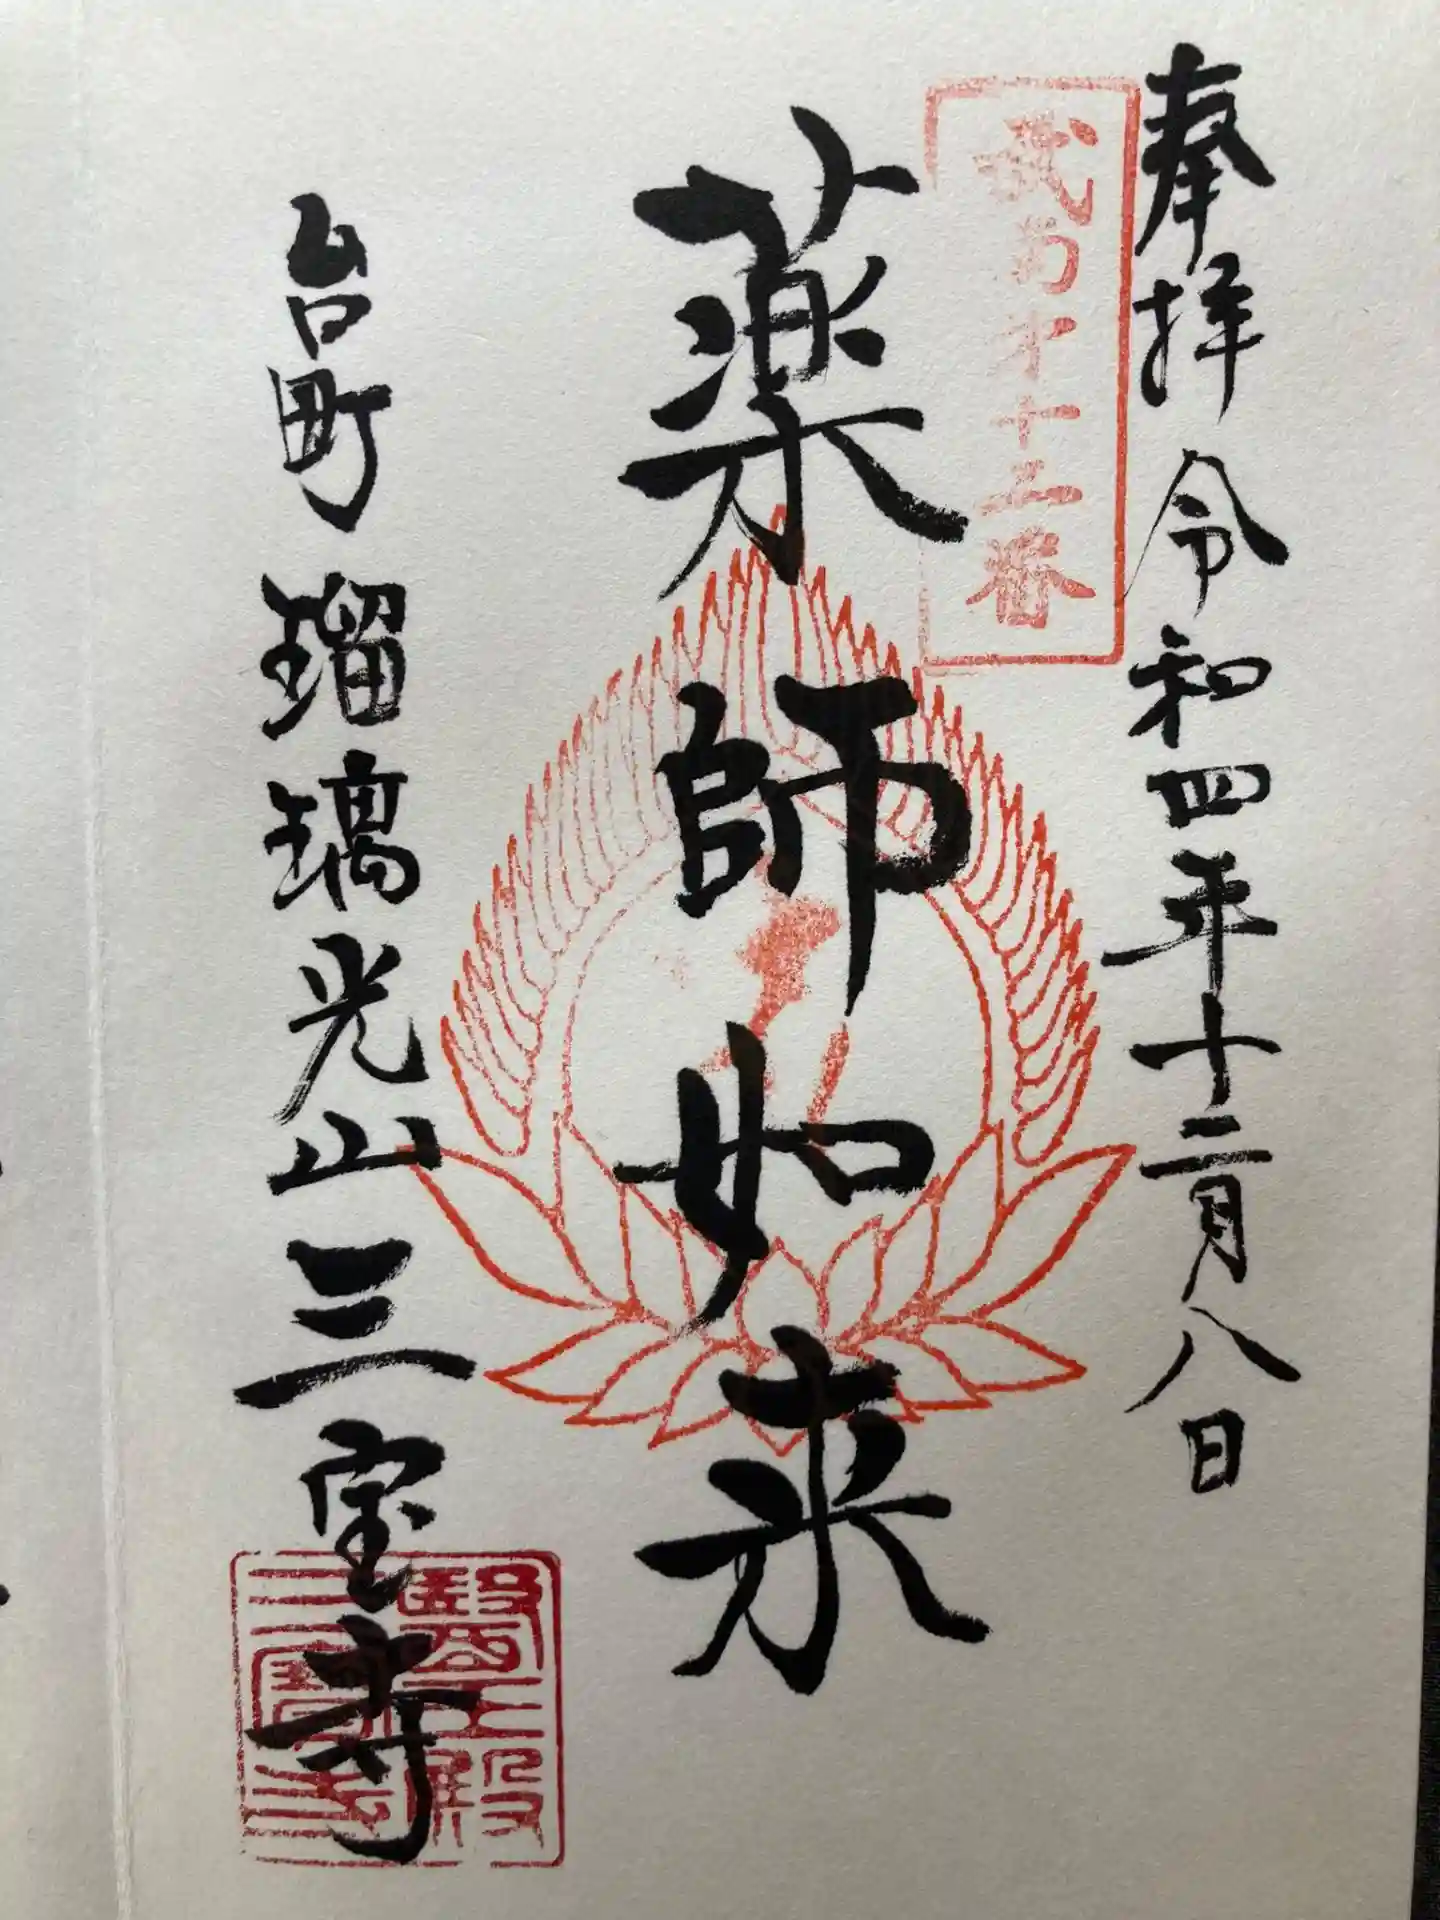 奉拝 令和四年十二月八日
武南十二番
薬師如来
台町 瑠璃光山三宝寺
醫王殿
三寳寺